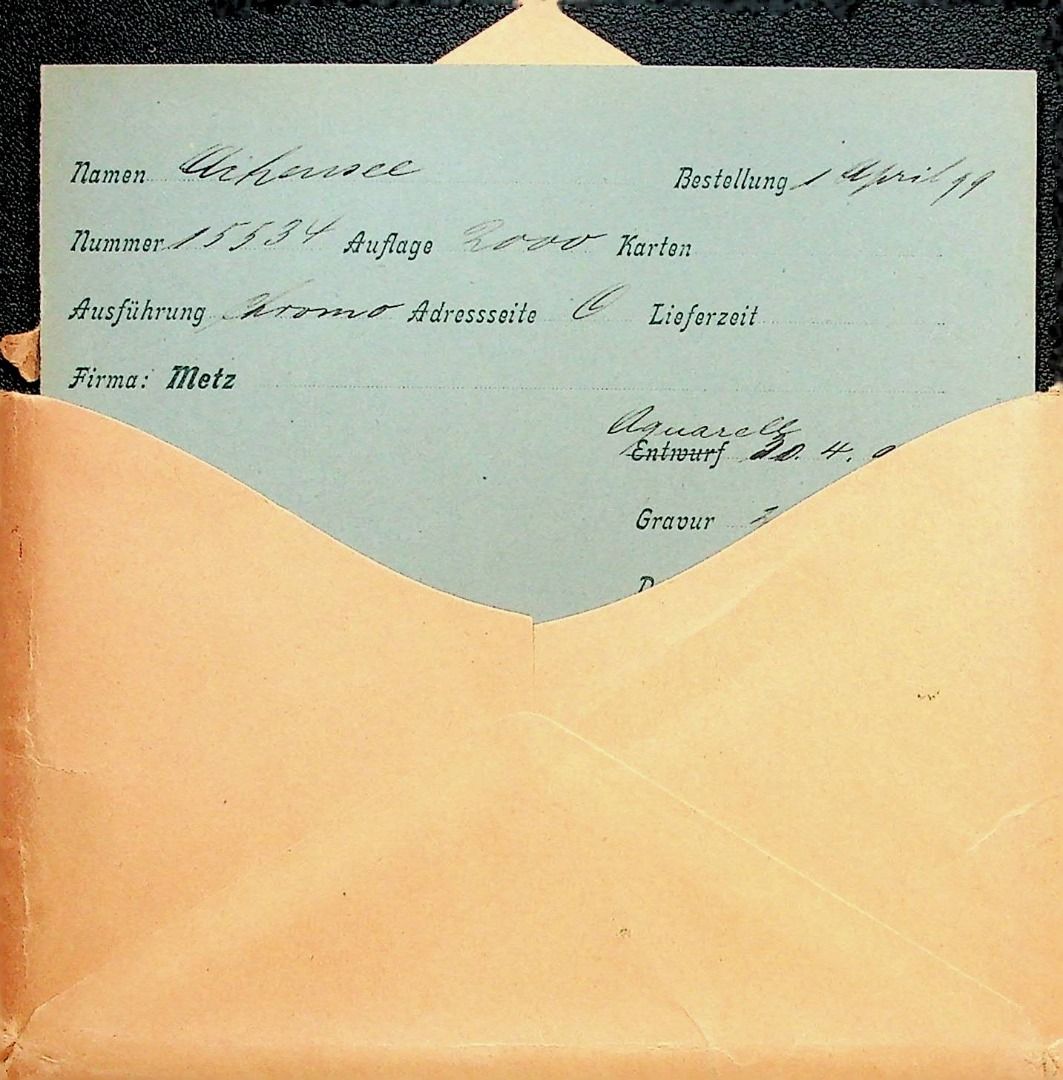 Namen Achensee Bestellung 1 April 99
Nummer 15534 Auflage 2000 Karten
Ausführung Chromo Adressseite C Lieferzeit
Firma: Metz
Aquarell
Entwurf 20. 4.
Gravur